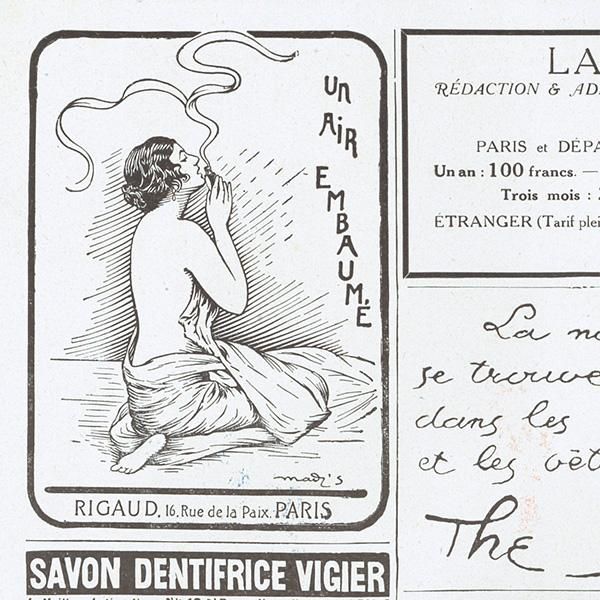 UN
AIR
EMBAUMÉ
mady's
RIGAUD, 16, Rue de la Paix. PARIS
SAVON DENTIFRICE VIGIER
LA
RÉDACTION & AD
PARIS et DÉPA
Un an : 100 francs. —
Trois mois :
ÉTRANGER (Tarif plei
La
se trouve
dans les
et les vêt
The